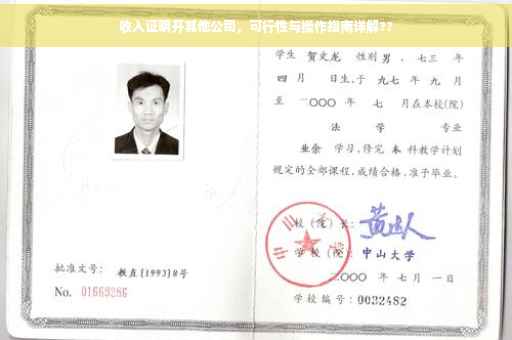 收入证明开其他公司，可行性与操作指南详解??
学生 贺文龙 性别 男 ，七三 年
四 月 日生，于 九七 年 九 月
至 二〇〇〇 年 七 月在本校(院)
法 学 专业
业余 学习，修完 本 科教学计划
规定的全部课程，成绩合格，准予毕业。
校（院）长：
学校（院）：中山大学
二〇〇〇 年 七 月 一 日
批准文号： 教直[1993]8号
No. 01669286
学校编号：0032482